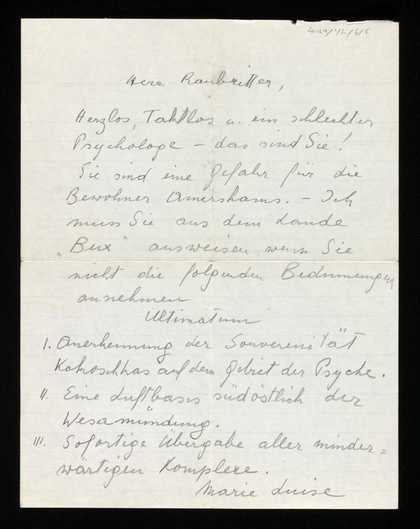 Herr Raubritter,
Herzlos, Taktlos u. ein schlechter
Psychologe – das sind Sie!
Sie sind eine Gefahr für die
Bewohner Amershams. – Ich
muss Sie aus dem Lande
"Bux" ausweisen wenn Sie
nicht die folgenden Bedinnungen
annehmen
Ultimatum
I. Anerkennung der Souverenität
Kokoschkas auf dem Gebiet der Psyche.
II. Eine Luftbasis südöstlich der
Wesamündung.
III. Sofortige Übergabe aller minder=
wärtigen Komplexe.
Marie Luise